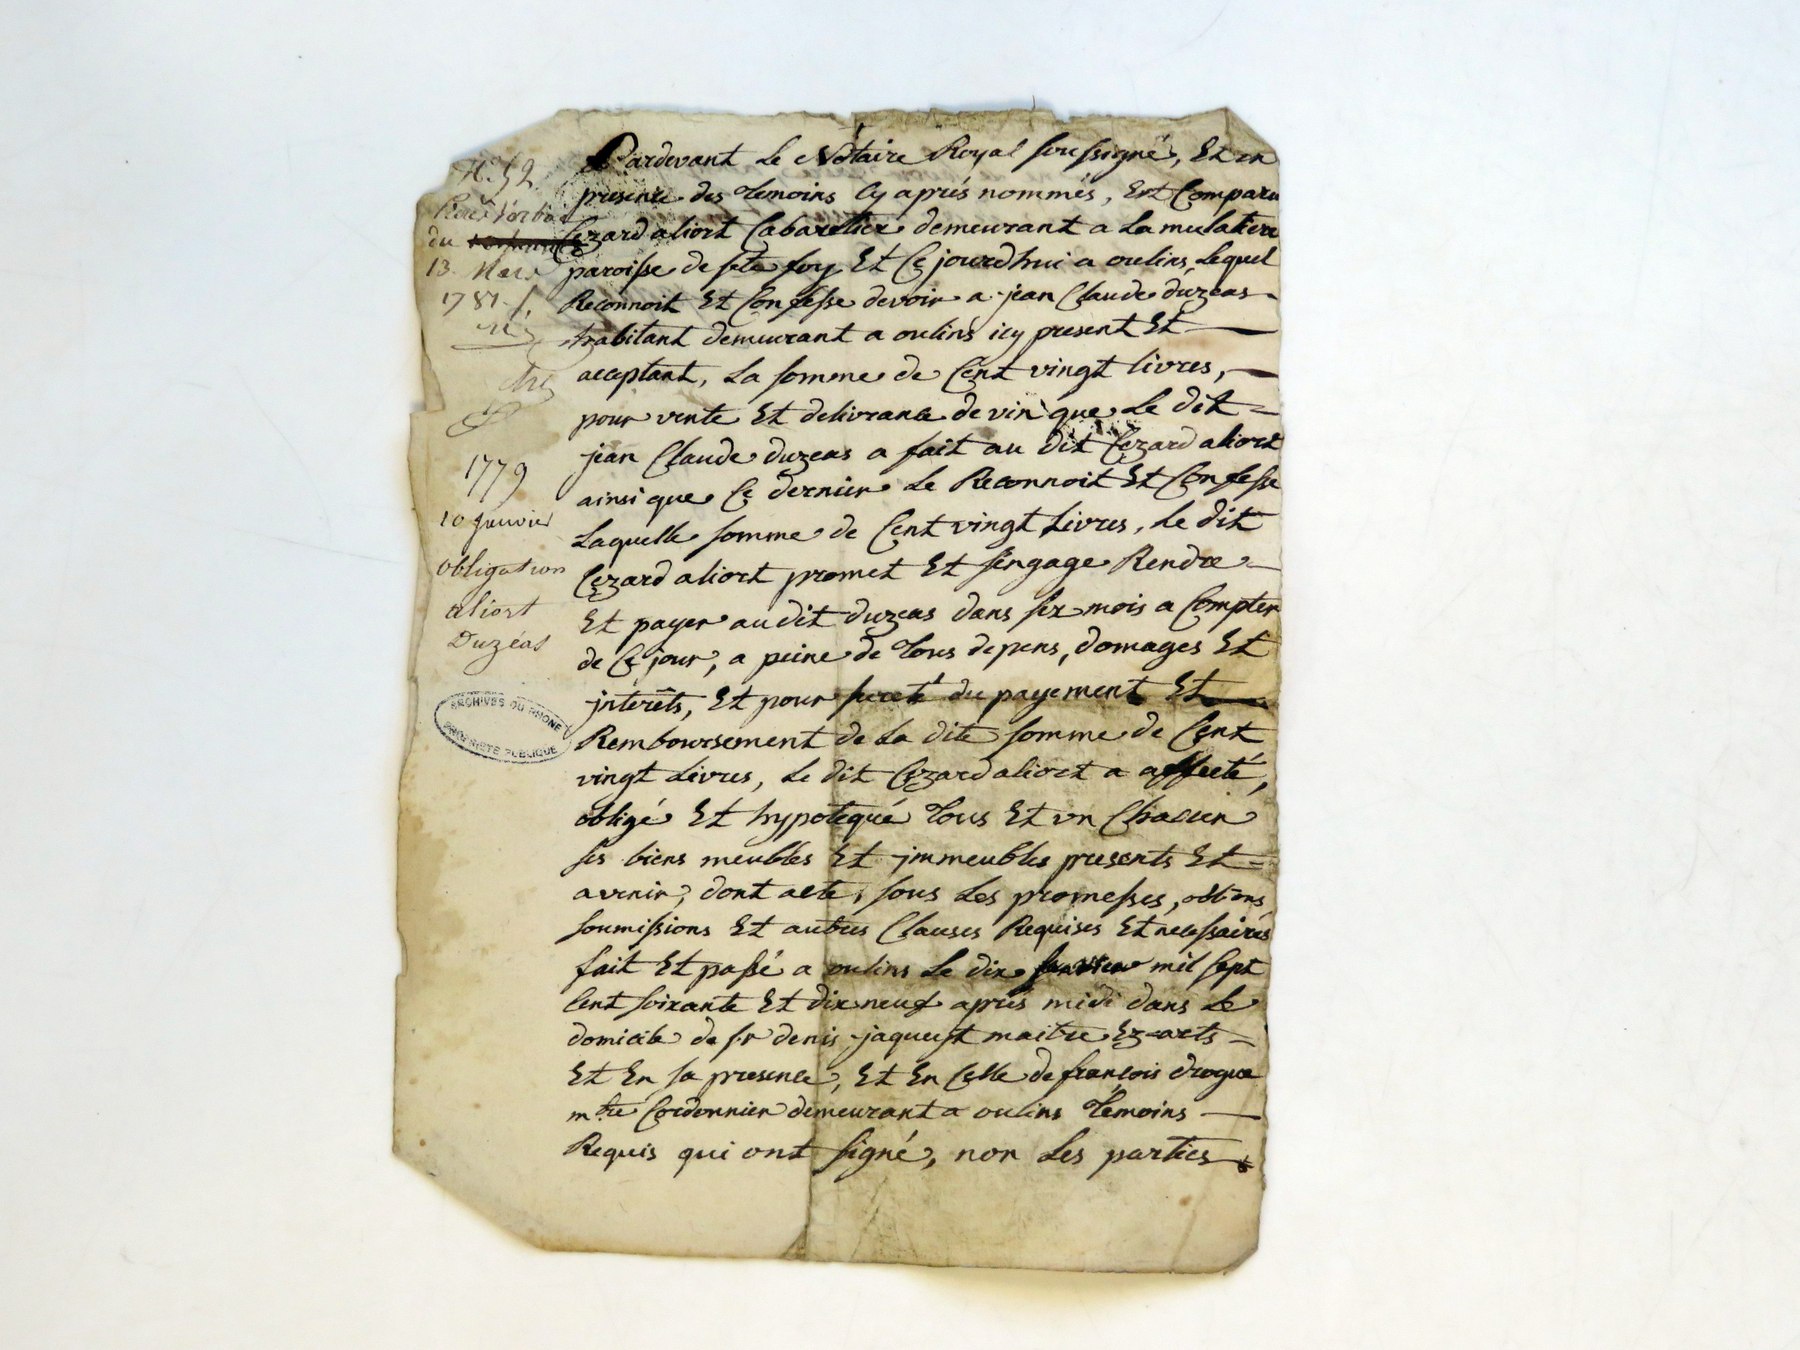 N.° 52
du
13. Mars
1781.
1779
10 janvier
obligation
aliort
Duzéas
ARCHIVES DU RHONE
PROPRIETE PUBLIQUE
Pardevant Le Notaire Royal soussigné, Et en
presence des Temoins Cy aprés nommés, Est Comparu
Cezard aliort Cabarettier demeurant a La mulatiere
paroisse de ste foy Et Ce jourdhui a oulins, Lequel
Reconnoit Et Confesse devoir a jean Claude duzeas
habitant demeurant a oulins icy present Et
aceptant, La somme de Cent vingt livres,
pour vente Et delivrance de vin que Le dit
jean Claude duzeas a fait au dit Cezard aliort
ainsi que Ce dernier Le Reconnoit Et Confesse
Laquelle somme de Cent vingt Livres, Le dit
Cezard aliort promet Et s'engage Rendre
Et payer audit duzeas dans six mois a Compter
de Ce jour, a peine de Tous depens, domages Et
jnterêts, Et pour sureté du payement Et
Remboursement de La dite somme de Cent
vingt Livres, Le dit Cezard aliort a affecté,
obligé Et hypotequé Tous Et un Chacun
ses biens meubles Et jmmeubles presents Et
avenir, dont acte, sous Les promesses, obl̃ons
soumissions Et autres Clauses Requises Et necessaires
fait Et passé a oulins Le dix janvier mil sept
Cent soixante Et dix neuf aprés midi dans Le
domicile de sr denis jaquest maitre Ez arts
Et En sa presence, Et En Celle de francois drogue
m.tre Cordonnier demeurant a oulins Témoins
Requis qui ont signé, non Les parties